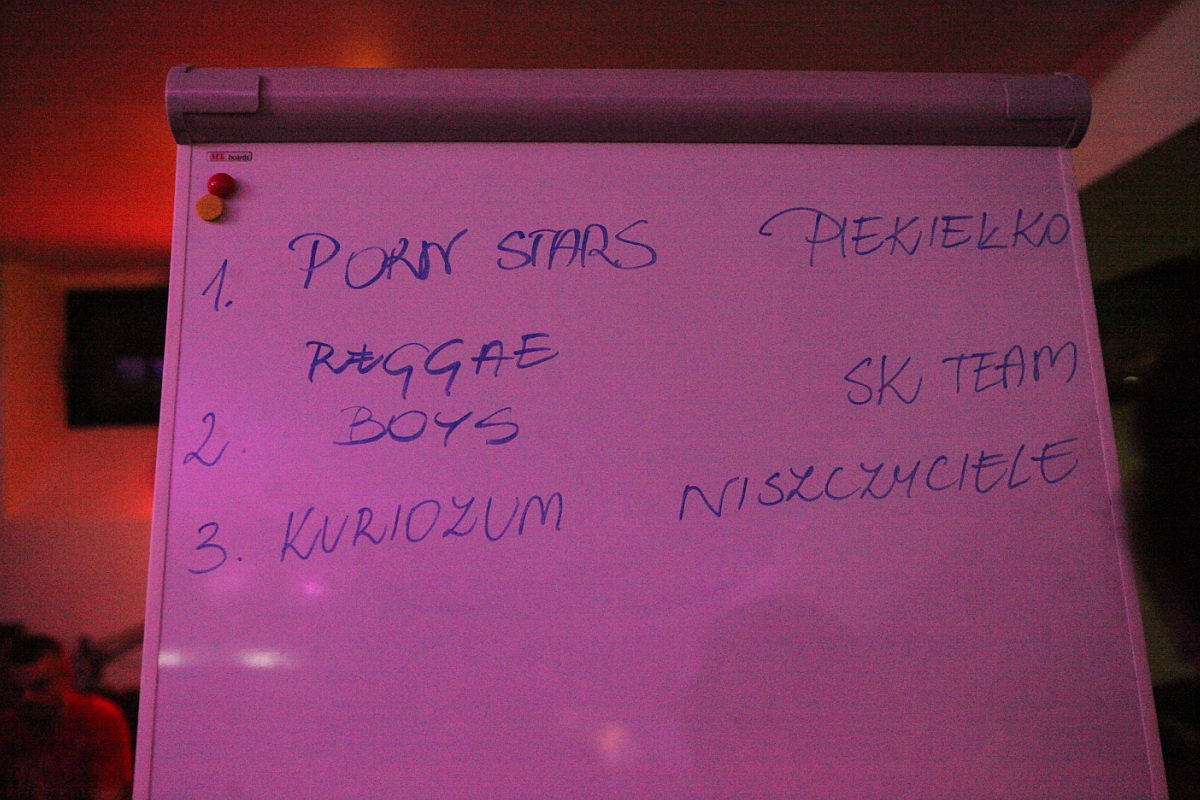 ALL boards
1. PORN STARS PIEKIEŁKO
REGGAE
2. BOYS SK TEAM
3. KURIOZUM NISZCZYCIELE